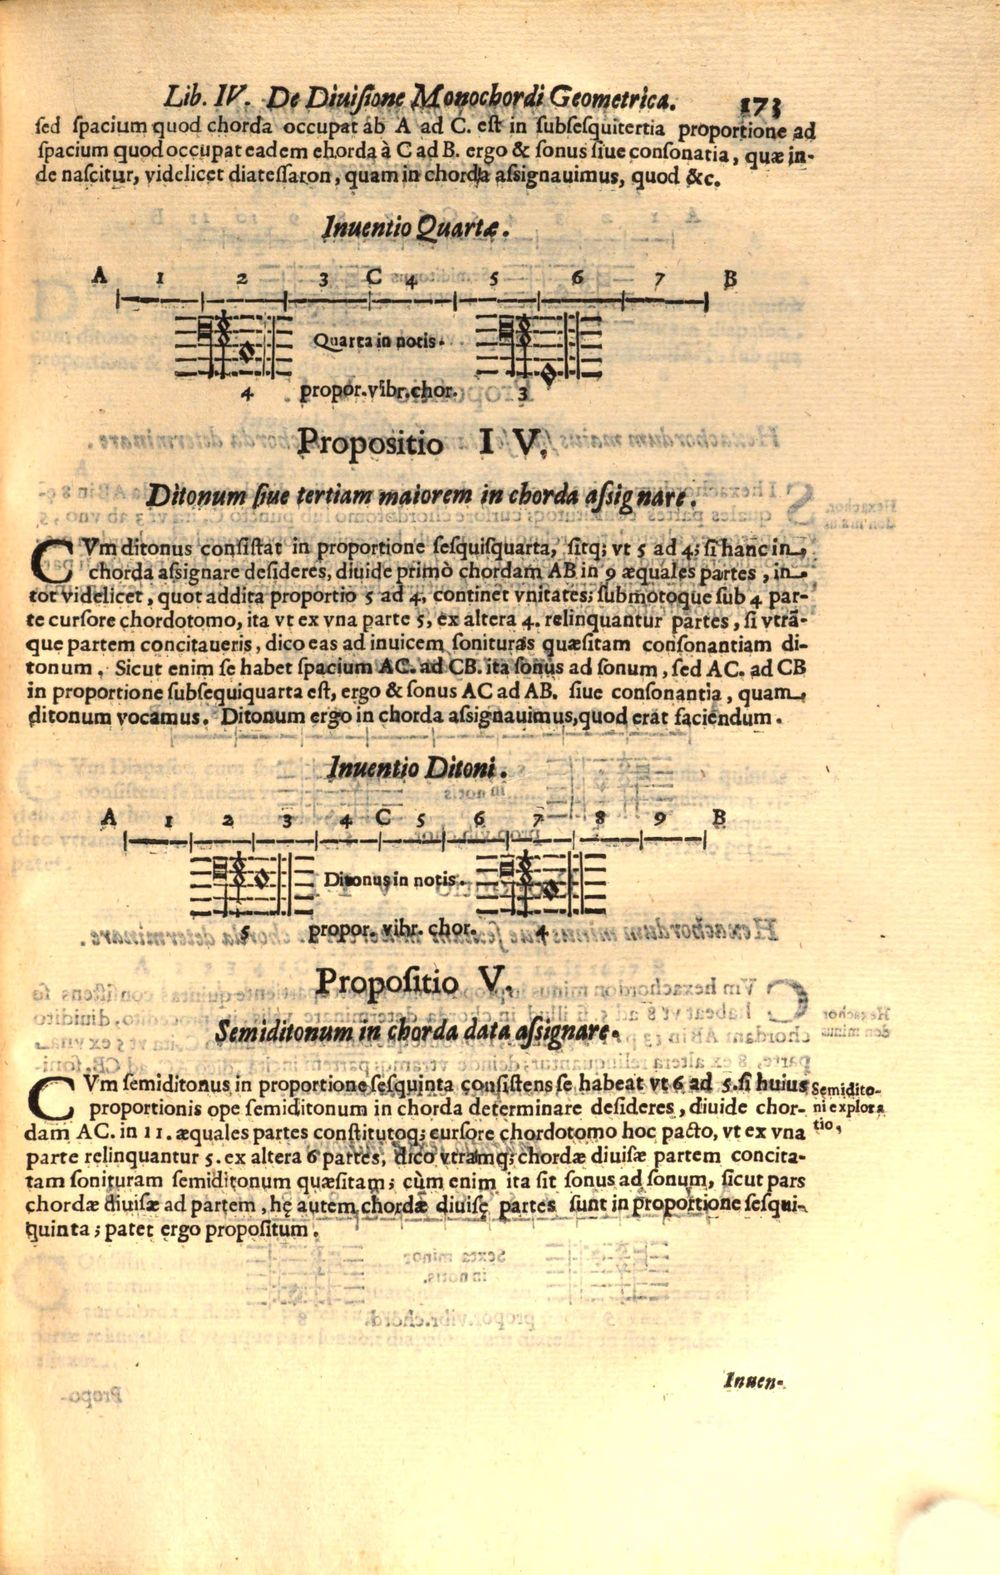 Lib. IV. De Diuisione Monochordi Geometrica. 173
sed spacium quod chorda occupat ab A ad C. est in subsesquitertia proportione ad
spacium quod occupat eadem ehorda à C ad B. ergo & sonus siue consonātia, quæ in-
de nascitur, videlicet diatessaron, quam in chorda assignauimus, quod &c.
Inuentio Quartæ.
A 1 2 3 C 4 5 6 7 B
Quarta in notis.
4 propor. vibr. chor. 3
Propositio IV.
Ditonum siue tertiam maiorem in chorda assignare.
CVm ditonus consistat in proportione sesquisquarta, sitq; vt 5 ad 4; si hanc in
chorda assignare desideres, diuide primò chordam AB in 9 æquales partes, in
tot videlicet, quot addita proportio 5 ad 4, continet vnitates; submotoque sub 4 par-
te cursore chordotomo, ita vt ex vna parte 5, ex altera 4. relinquantur partes, si vtrā-
que partem concitaueris, dico eas ad inuicem sonituras quæsitam consonantiam di-
tonum. Sicut enim se habet spacium AC. ad CB. ita sonus ad sonum, sed AC. ad CB
in proportione subsequiquarta est, ergo & sonus AC ad AB. siue consonantia, quam
ditonum vocamus. Ditonum ergo in chorda assignauimus, quod erat faciendum.
Inuentio Ditoni.
A 1 2 3 4 C 5 6 7 8 9 B
Ditonus in notis.
5 propor. vibr. chor. 4
Propositio V.
Semiditonum in chorda data assignare.
CVm semiditonus in proportione sesquinta consistens se habeat vt 6 ad 5. si huius
proportionis ope semiditonum in chorda determinare desideres, diuide chor-
dam AC. in 11. æquales partes constitutoq; cursore chordotomo hoc pacto, vt ex vna
parte relinquantur 5. ex altera 6 partes, dico vtramq; chordæ diuisæ partem concita-
tam sonituram semiditonum quæsitam; cùm enim ita sit sonus ad sonum, sicut pars
chordæ diuisæ ad partem, hę autem chordæ diuisę partes sunt in proportione sesqui-
quinta; patet ergo propositum.
Semidito-
ni explora
tio,
Inuen-